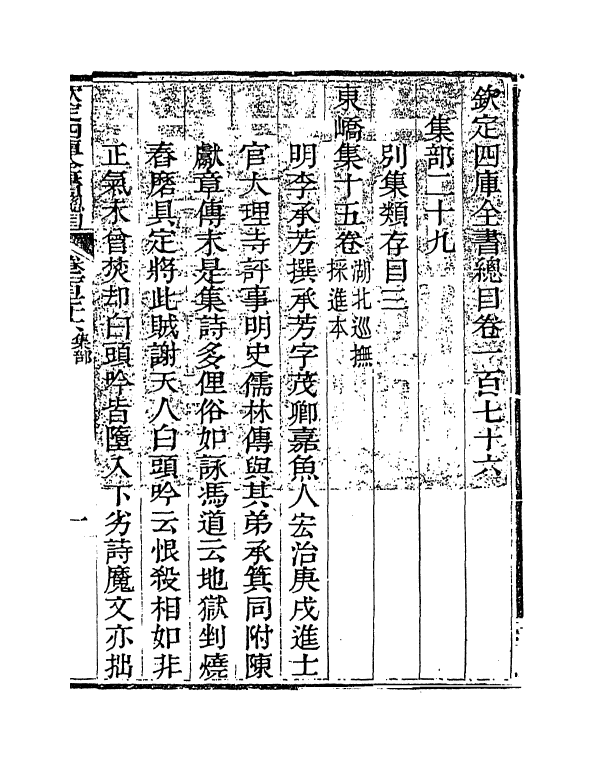 欽定四庫全書總目卷一百七十六
集部二十九
別集類存目三
東嶠集十五卷 湖北巡撫採進本
明李承芳撰承芳字茂卿嘉魚人宏治庚戌進士
官大理寺評事明史儒林傳與其弟承箕同附陳
獻章傳末是集詩多俚俗如詠馮道云地獄剉燒
舂磨具定將此賊謝天人白頭吟云恨殺相如非
正氣未曾焚却白頭吟皆墮入下劣詩魔文亦拙
欽定四庫全書總目 卷一百七十六 集部 一